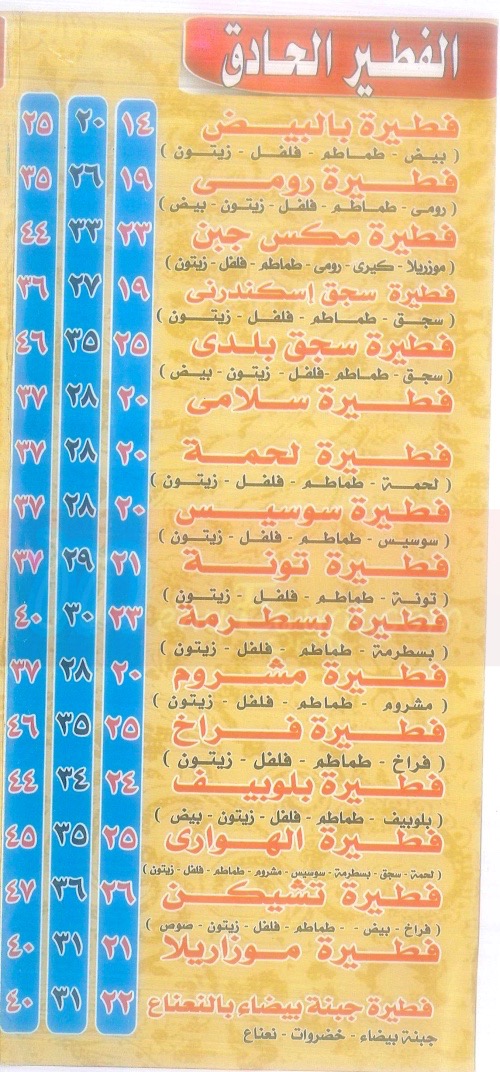 الفطير الحادق
فطيرة بالبيض ١٤ ٢٠ ٢٥
( بيض - طماطم - فلفل - زيتون )
فطيرة رومى ١٩ ٢٦ ٣٥
( رومى - طماطم - فلفل - زيتون - بيض )
فطيرة مكس جبن ٢٣ ٣٣ ٤٤
( موزريلا - كيرى - رومى - طماطم - فلفل - زيتون )
فطيرة سجق إسكندرنى ١٩ ٢٧ ٣٦
( سجق - طماطم - فلفل - زيتون )
فطيرة سجق بلدى ٢٥ ٣٥ ٤٦
( سجق - طماطم - فلفل - زيتون - بيض )
فطيرة سلامى ٢٠ ٢٨ ٣٧
فطيرة لحمة ٢٠ ٢٨ ٣٧
( لحمة - طماطم - فلفل - زيتون )
فطيرة سوسيس ٢٠ ٢٨ ٣٧
( سوسيس - طماطم - فلفل - زيتون )
فطيرة تونة ٢١ ٢٩ ٣٧
( تونة - طماطم - فلفل - زيتون )
فطيرة بسطرمة ٢٣ ٣٠ ٤٠
( بسطرمة - طماطم - فلفل - زيتون )
فطيرة مشروم ٢٠ ٢٨ ٣٧
( مشروم - طماطم - فلفل - زيتون )
فطيرة فراخ ٢٥ ٣٥ ٤٦
( فراخ - طماطم - فلفل - زيتون )
فطيرة بلوبيف ٢٤ ٣٤ ٤٤
( بلوبيف - طماطم - فلفل - زيتون - بيض )
فطيرة الهوارى ٢٥ ٣٥ ٤٥
( لحمة - سجق - بسطرمة - سوسيس - مشروم - طماطم - فلفل - زيتون )
فطيرة تشيكن ٢٦ ٣٦ ٤٧
( فراخ - بيض - - طماطم - فلفل - زيتون - صوص )
فطيرة موزاريلا ٢١ ٣١ ٤٠
فطيرة جبنة بيضاء بالنعناع ٢٢ ٣١ ٤٠
جبنة بيضاء - خضروات - نعناع